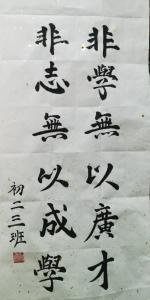 非學無以廣才
非志無以成學
初二三班